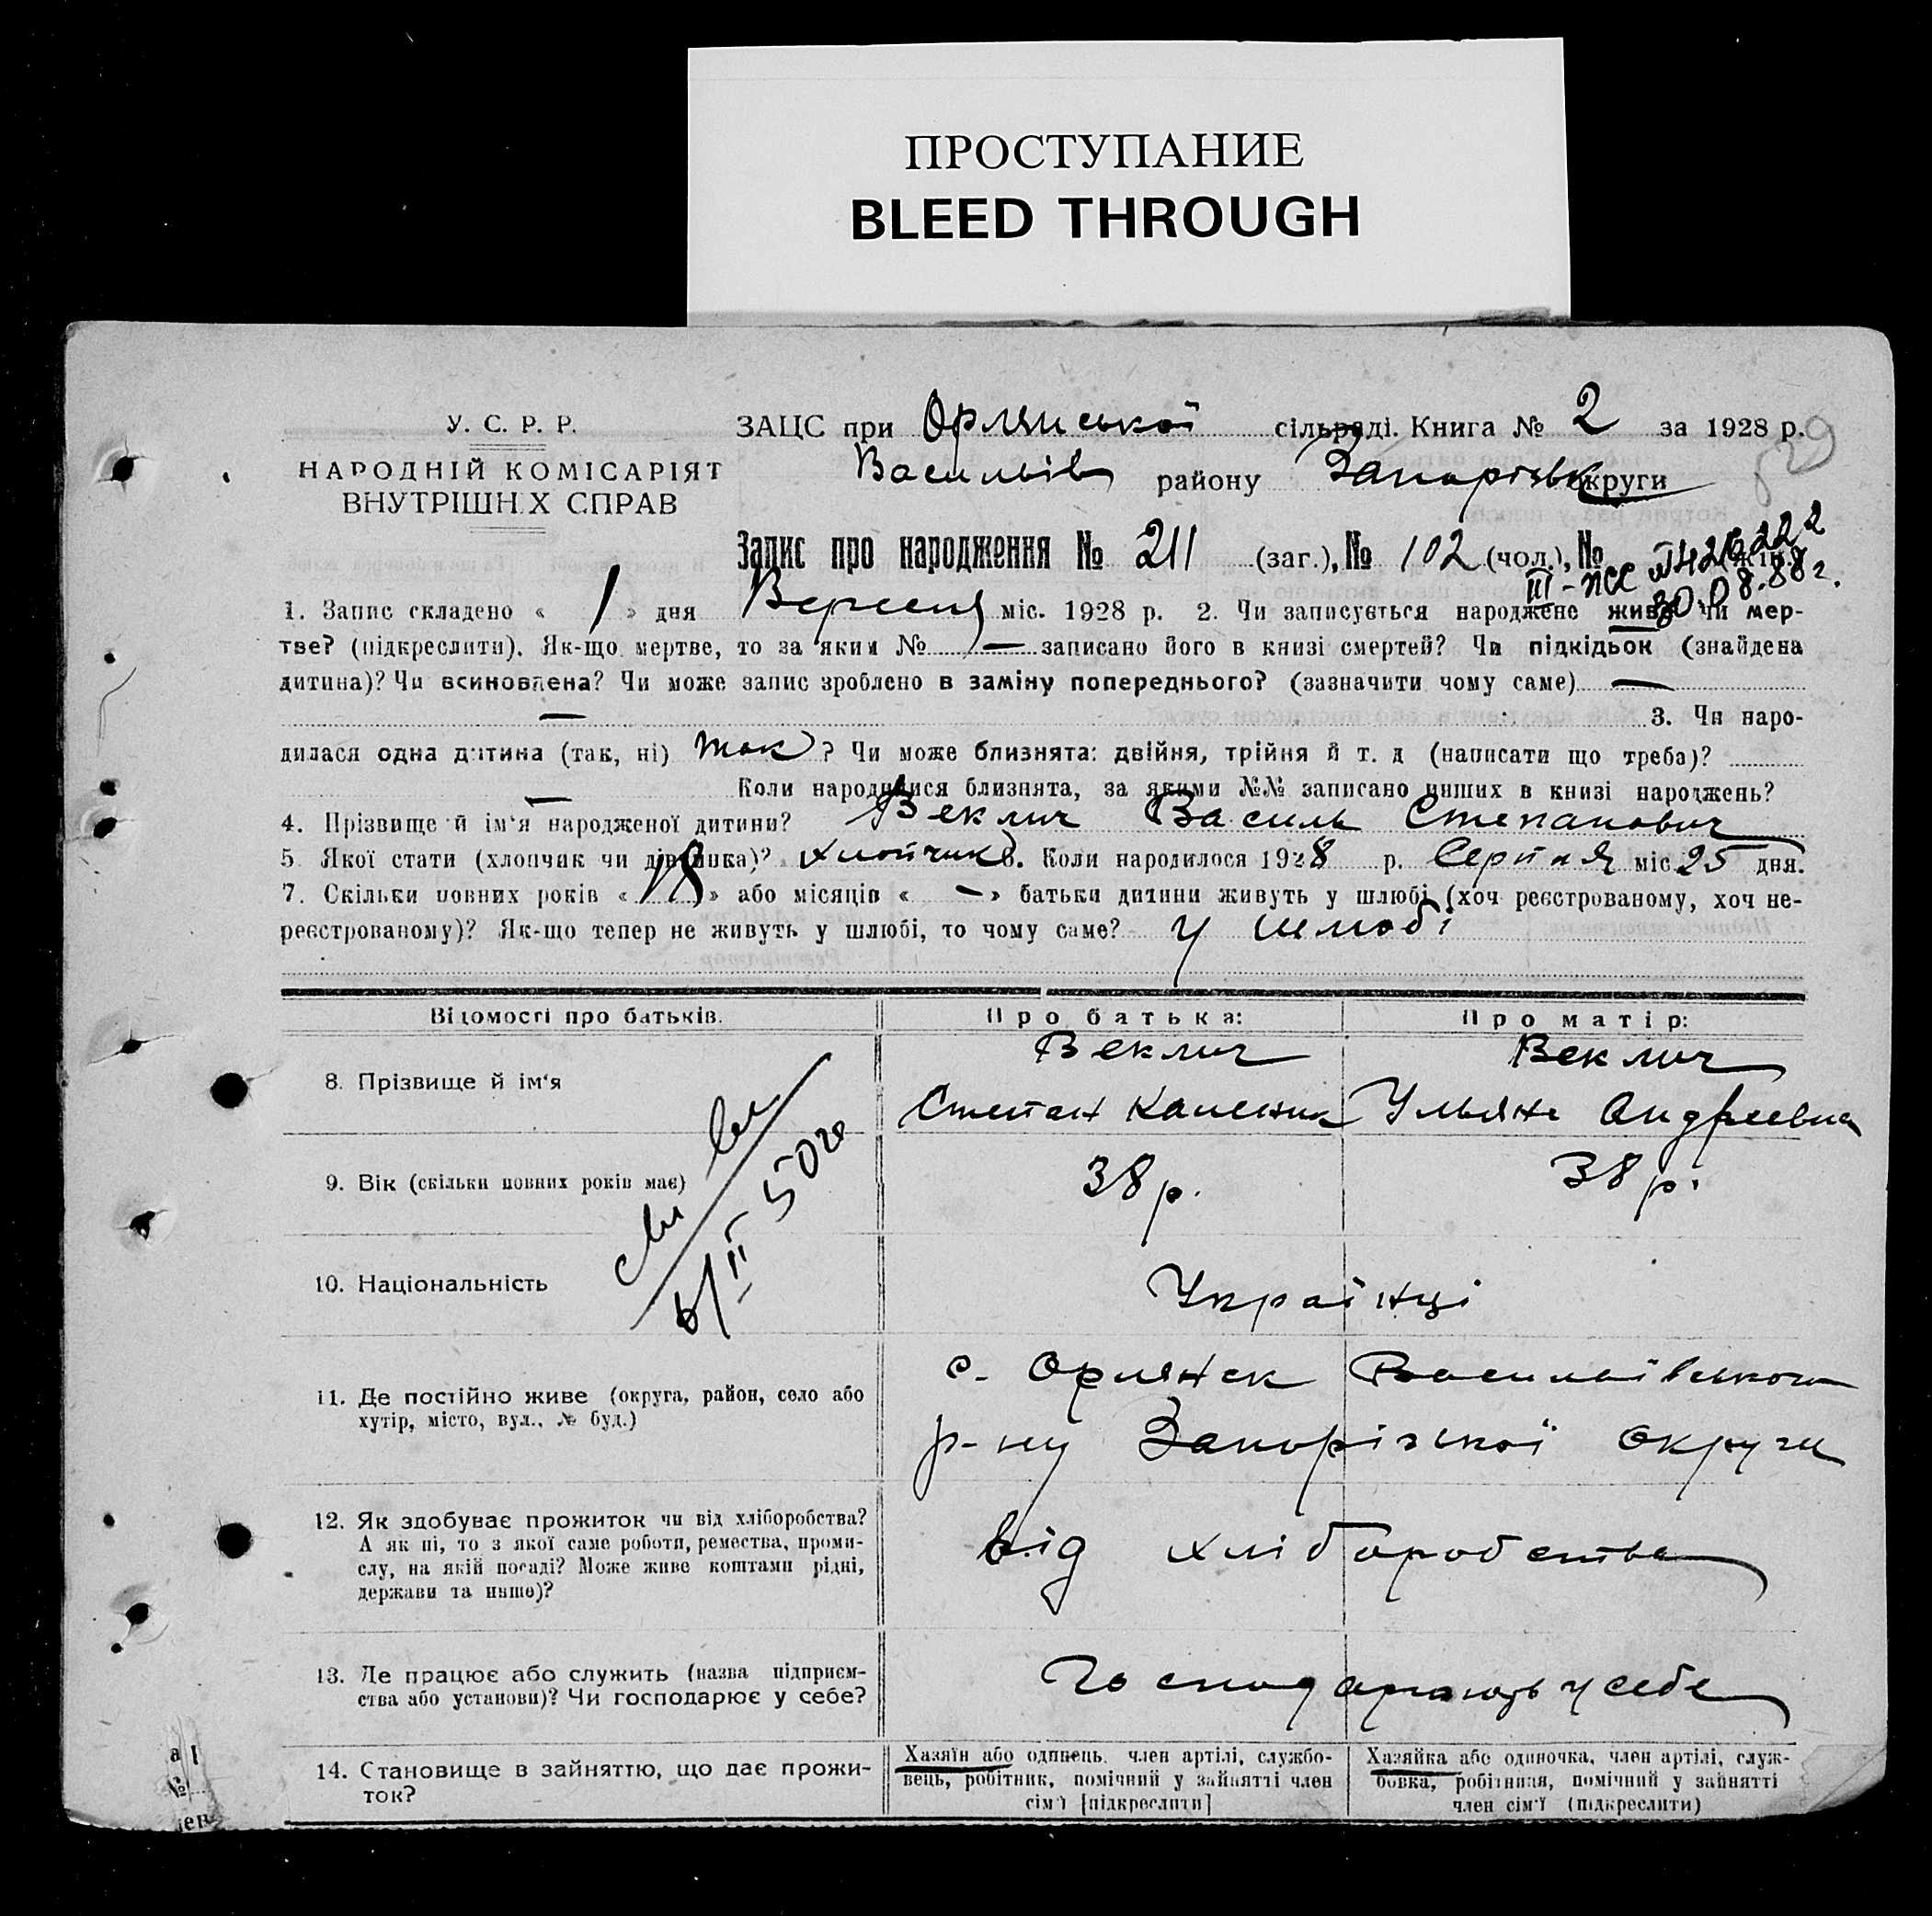 ПРОСТУПАНИЕ
BLEED THROUGH
У. С. Р. Р.
НАРОДНІЙ КОМІСАРІЯТ
ВНУТРІШН.Х СПРАВ
ЗАЦС при Орлянської сільраді. Книга № 2 за 1928 р.
Василів району Запорізьк округи
Запис про народження № 211 (заг.), № 102 (чол.), №
III-ПСС
30.08.88г.
1. Запис складено « 1 » дня Вересня міс. 1928 р. 2. Чи записується народжене живе чи мер-
тве? (підкреслити). Як-що мертве, то за яким № — записано його в книзі смертей? Чи підкідьок (знайдена
дитина)? Чи всиновлена? Чи може запис зроблено в заміну попереднього? (зазначити чому саме) —
— 3. Чи наро-
дилася одна дитина (так, ні) так ? Чи може близнята: двійня, трійня й т. д (написати що треба)?
— Коли народилися близнята, за якими №№ записано инших в книзі народжень?
4. Прізвище й ім'я народженої дитини? Веклич Василь Степанович
5 Якої стати (хлопчик чи дівчинка)? хлопчик 6. Коли народилося 1928 р. Серпня міс. 25 дня.
7. Скільки повних років « 18 » або місяців « — » батьки дитини живуть у шлюбі (хоч реєстрованому, хоч не-
реєстрованому)? Як-що тепер не живуть у шлюбі, то чому саме? У шлюбі
Відомості про батьків.
Про батька:
Про матір:
8. Прізвище й ім'я
Веклич
Степан
Веклич
Ульяна Андреевна
9. Вік (скільки повних років має)
38 р.
38 р.
10. Національність
Українці
11. Де постійно живе (округа, район, село або
хутір, місто, вул., № буд.)
с. Орлянск Василівського
р-ну Запорізької округи
12. Як здобуває прожиток чи від хліборобства?
А як ні, то з якої саме роботи, ремества, проми-
слу, на якій посаді? Може живе коштами рідні,
держави та инше)?
від хліборобства
13. Де працює або служить (назва підприєм-
ства або установи)? Чи господарює у себе?
Господарюють у себе
14. Становище в зайняттю, що дає прожи-
ток?
Хазяїн або одинець, член артілі, службо-
вець, робітник, помічний у зайнятті член
сім'ї [підкреслити]
Хазяйка або одиночка, член артілі, служ-
бовка, робітниця, помічний у зайнятті
член сім'ї (підкреслити)